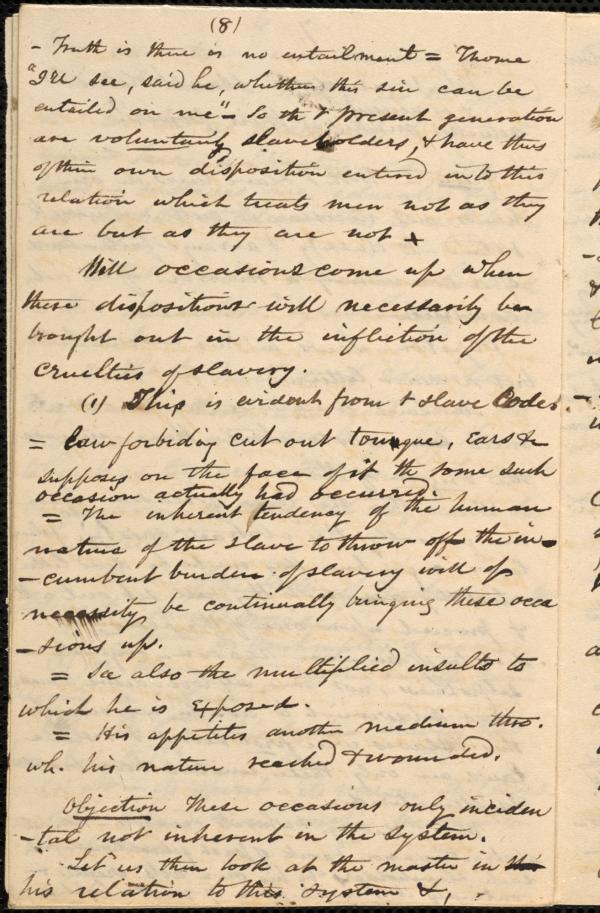 (8)
- Truth is there is no entailment = Thome
"I'll see, said he, whether this sin can be
entailed on me" - So th t present generation
are voluntary slaveholders, & have thus
of their own disposition entered into this
relation which treats men not as they
are but as they are not +
Will occasions come up when
these dispositions will necessarily be
brought out in the infliction of the
cruelties of slavery.
(1) This is evident from t slave Codes.
= Law forbiding cut out tongue, Ears &c
supposes on the face of it th some such
occasion actually had occurred.
= The inherent tendency of the human
nature of the slave to throw off the in-
-cumbent burden of slavery will of
necessity be continually bringing these occa
-sions up.
= See also the multiplied insults to
which he is exposed.
= His appetites another medium thro.
wh. his nature reached & wounded.
Objection These occasions only inciden
-tal not inherent in the system.
Let us then look at the master in
his relation to this system &,